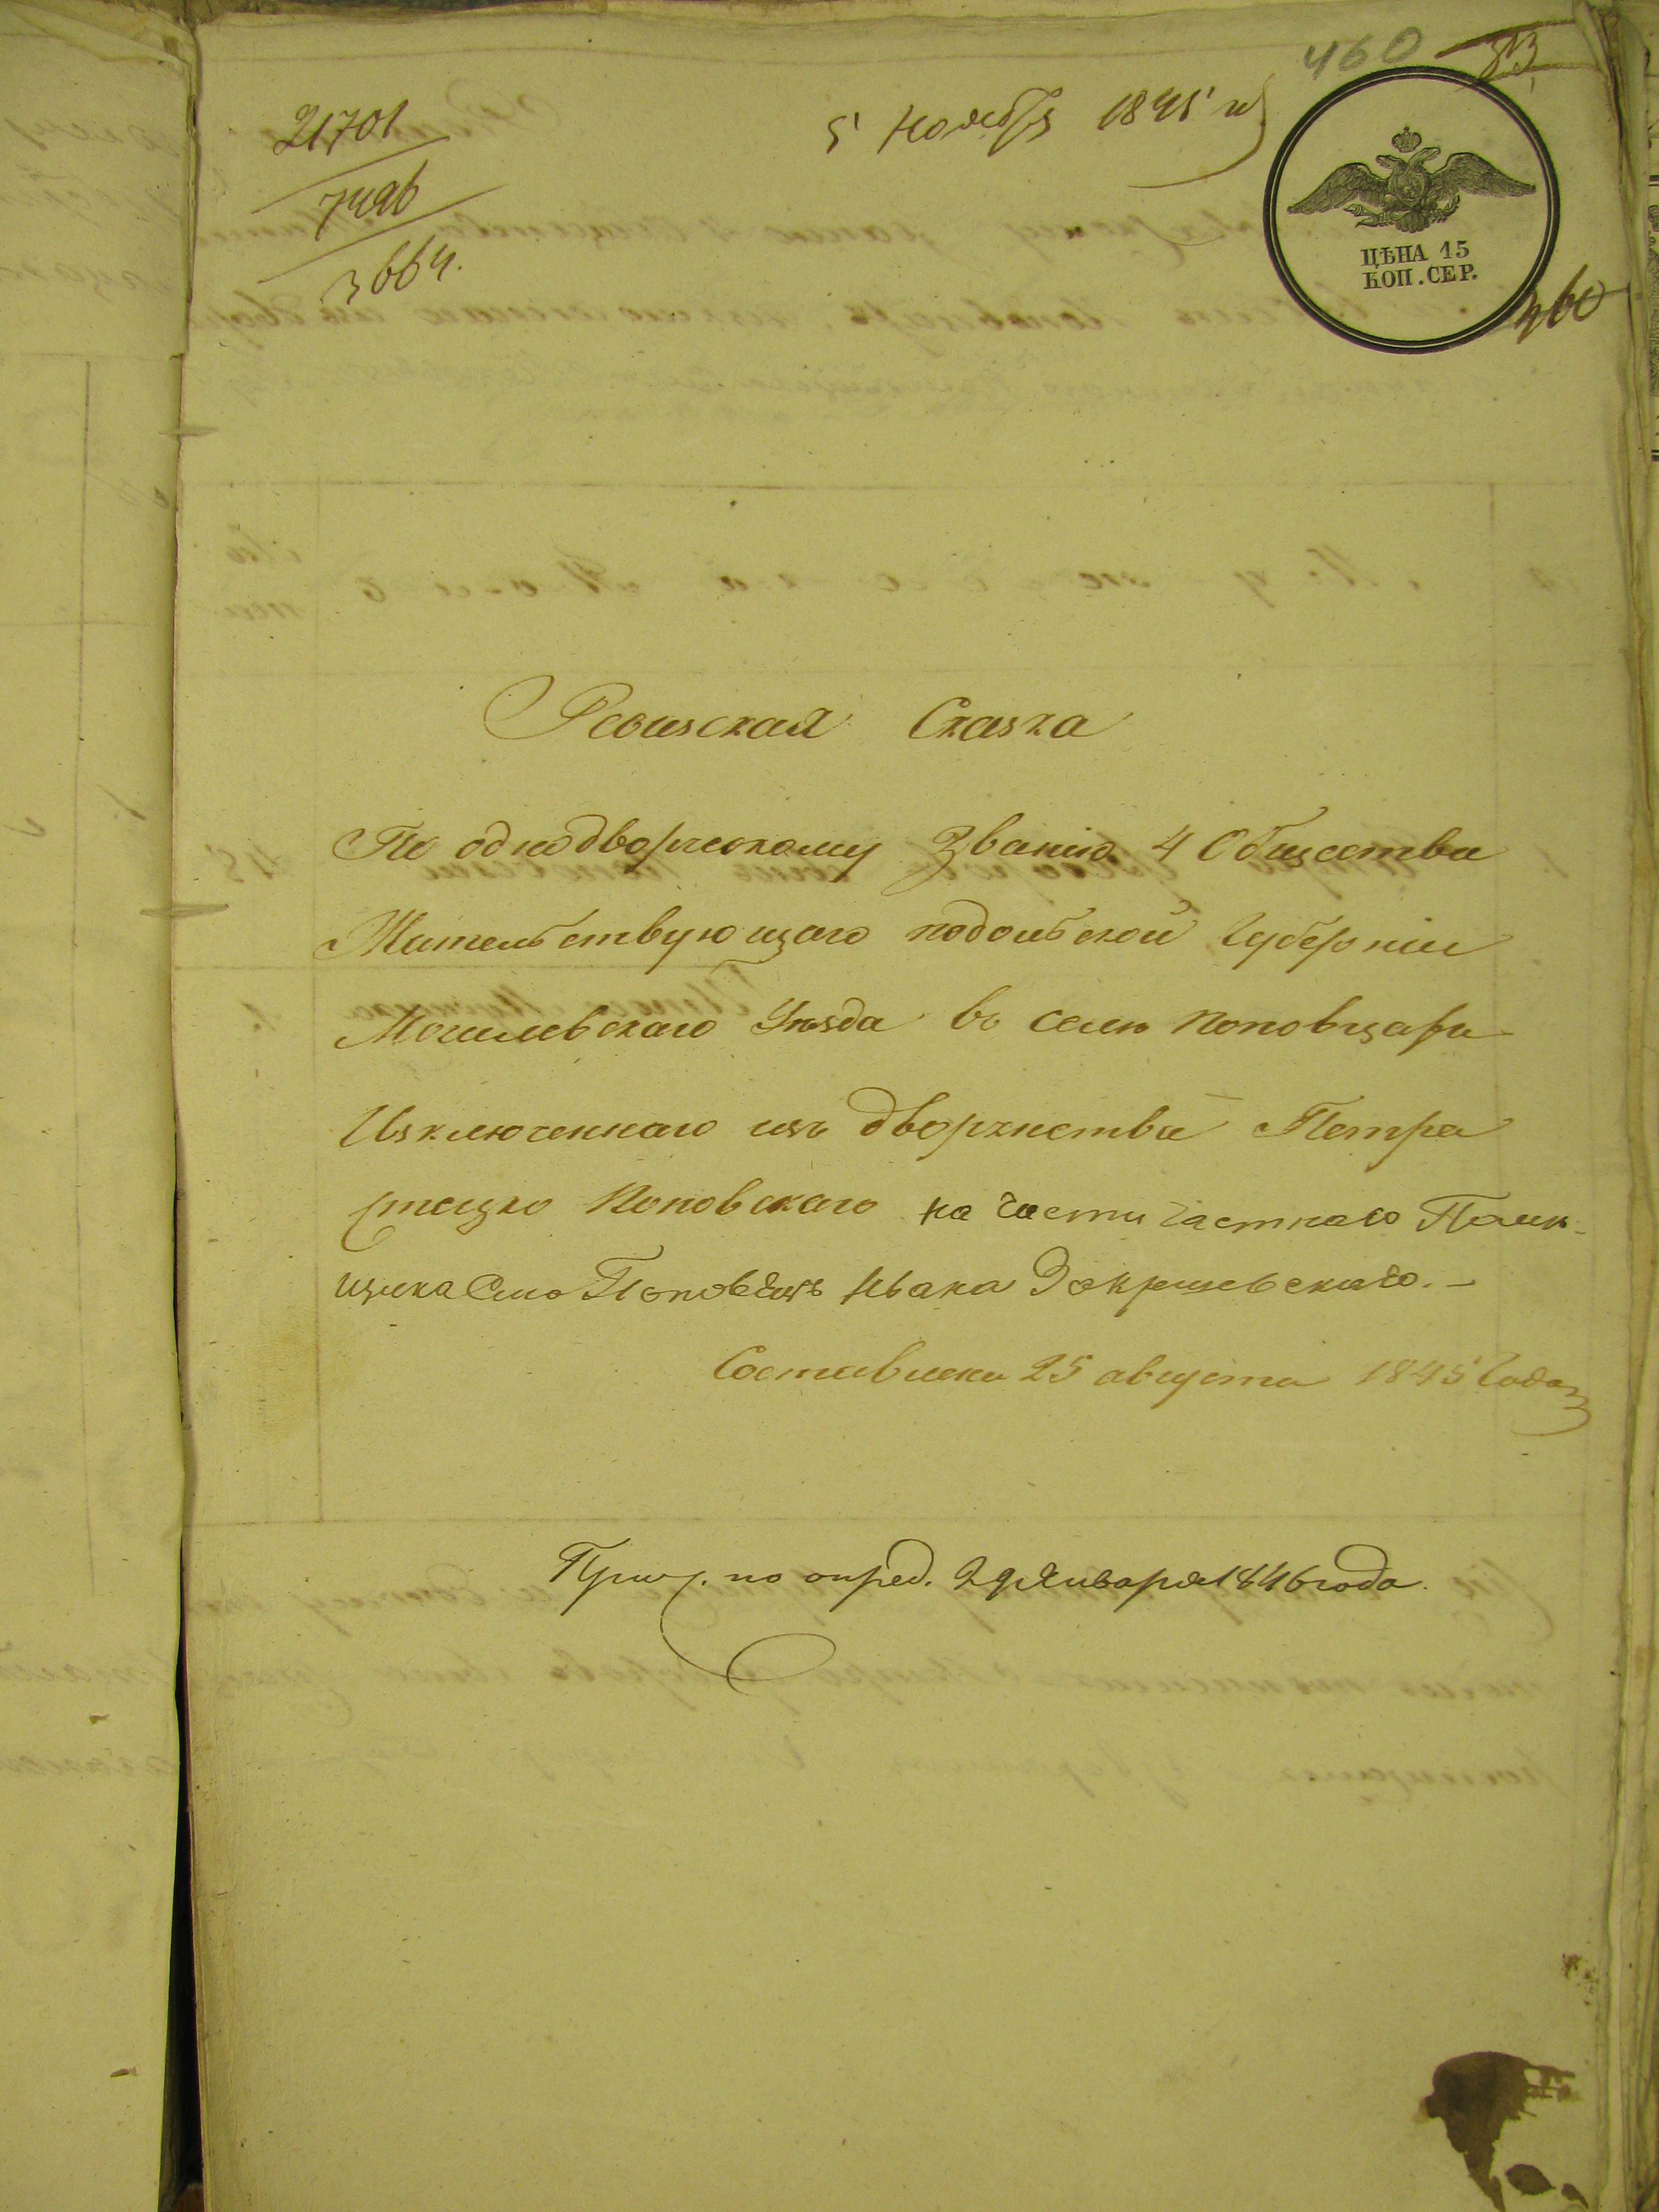 460
83
21701
7496
3664.
5 Ноября 1845 г
ЦѢНА 15
КОП. СЕР.
460
Ревизская Сказка
По однодворческому Званию 4 Общества
Жительствующаго подольской Губернии
Могилевскаго Уѣзда въ селѣ Поповцахъ
Изключеннаго изъ дворянства Петра
Поповскаго на части частнаго Помѣ-
щика Ивана Закржевскаго. –
Составлена 25 августа 1845 Года
Прич. по опред. 29 Января 1846 года.